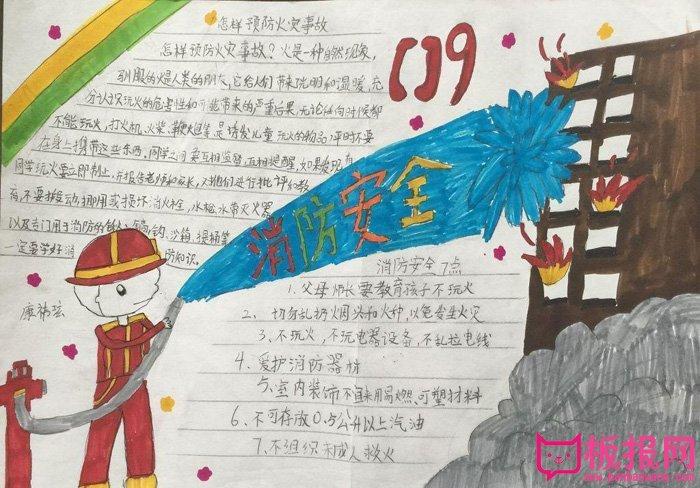 怎样预防火灾事故
怎样预防火灾事故?火是一种自然现象,
驯服的火是人类的朋友,它给人们带来光明和温暖,充
分认识玩火的危害性和可能带来的严重后果,无论任何时候都
不能玩火,打火机、火柴、鞭炮等是诱发儿童玩火的物品,平时不要
在身上携带这些东西,同学之间要互相监督,互相提醒,如果发现有
同学玩火要立即制止,并报告老师和家长,对他们进行批评和教
育,不要挪动、挪用或损坏消火栓,水枪水带灭火器
以及专门用于消防的 钩、沙箱、提桶等
一定要学好消防知识。
119
消防安全
康祐弦
消防安全7点
1、父母师长要教育孩子不玩火
2、切勿乱扔烟头和火种,以免发生火灾
3、不玩火,不玩电器设备,不乱拉电线
4、爱护消防器材
5、室内装饰不宜采用易燃、可塑材料
6、不可存放0.5公升以上汽油
7、不组织未成人救火
板报网